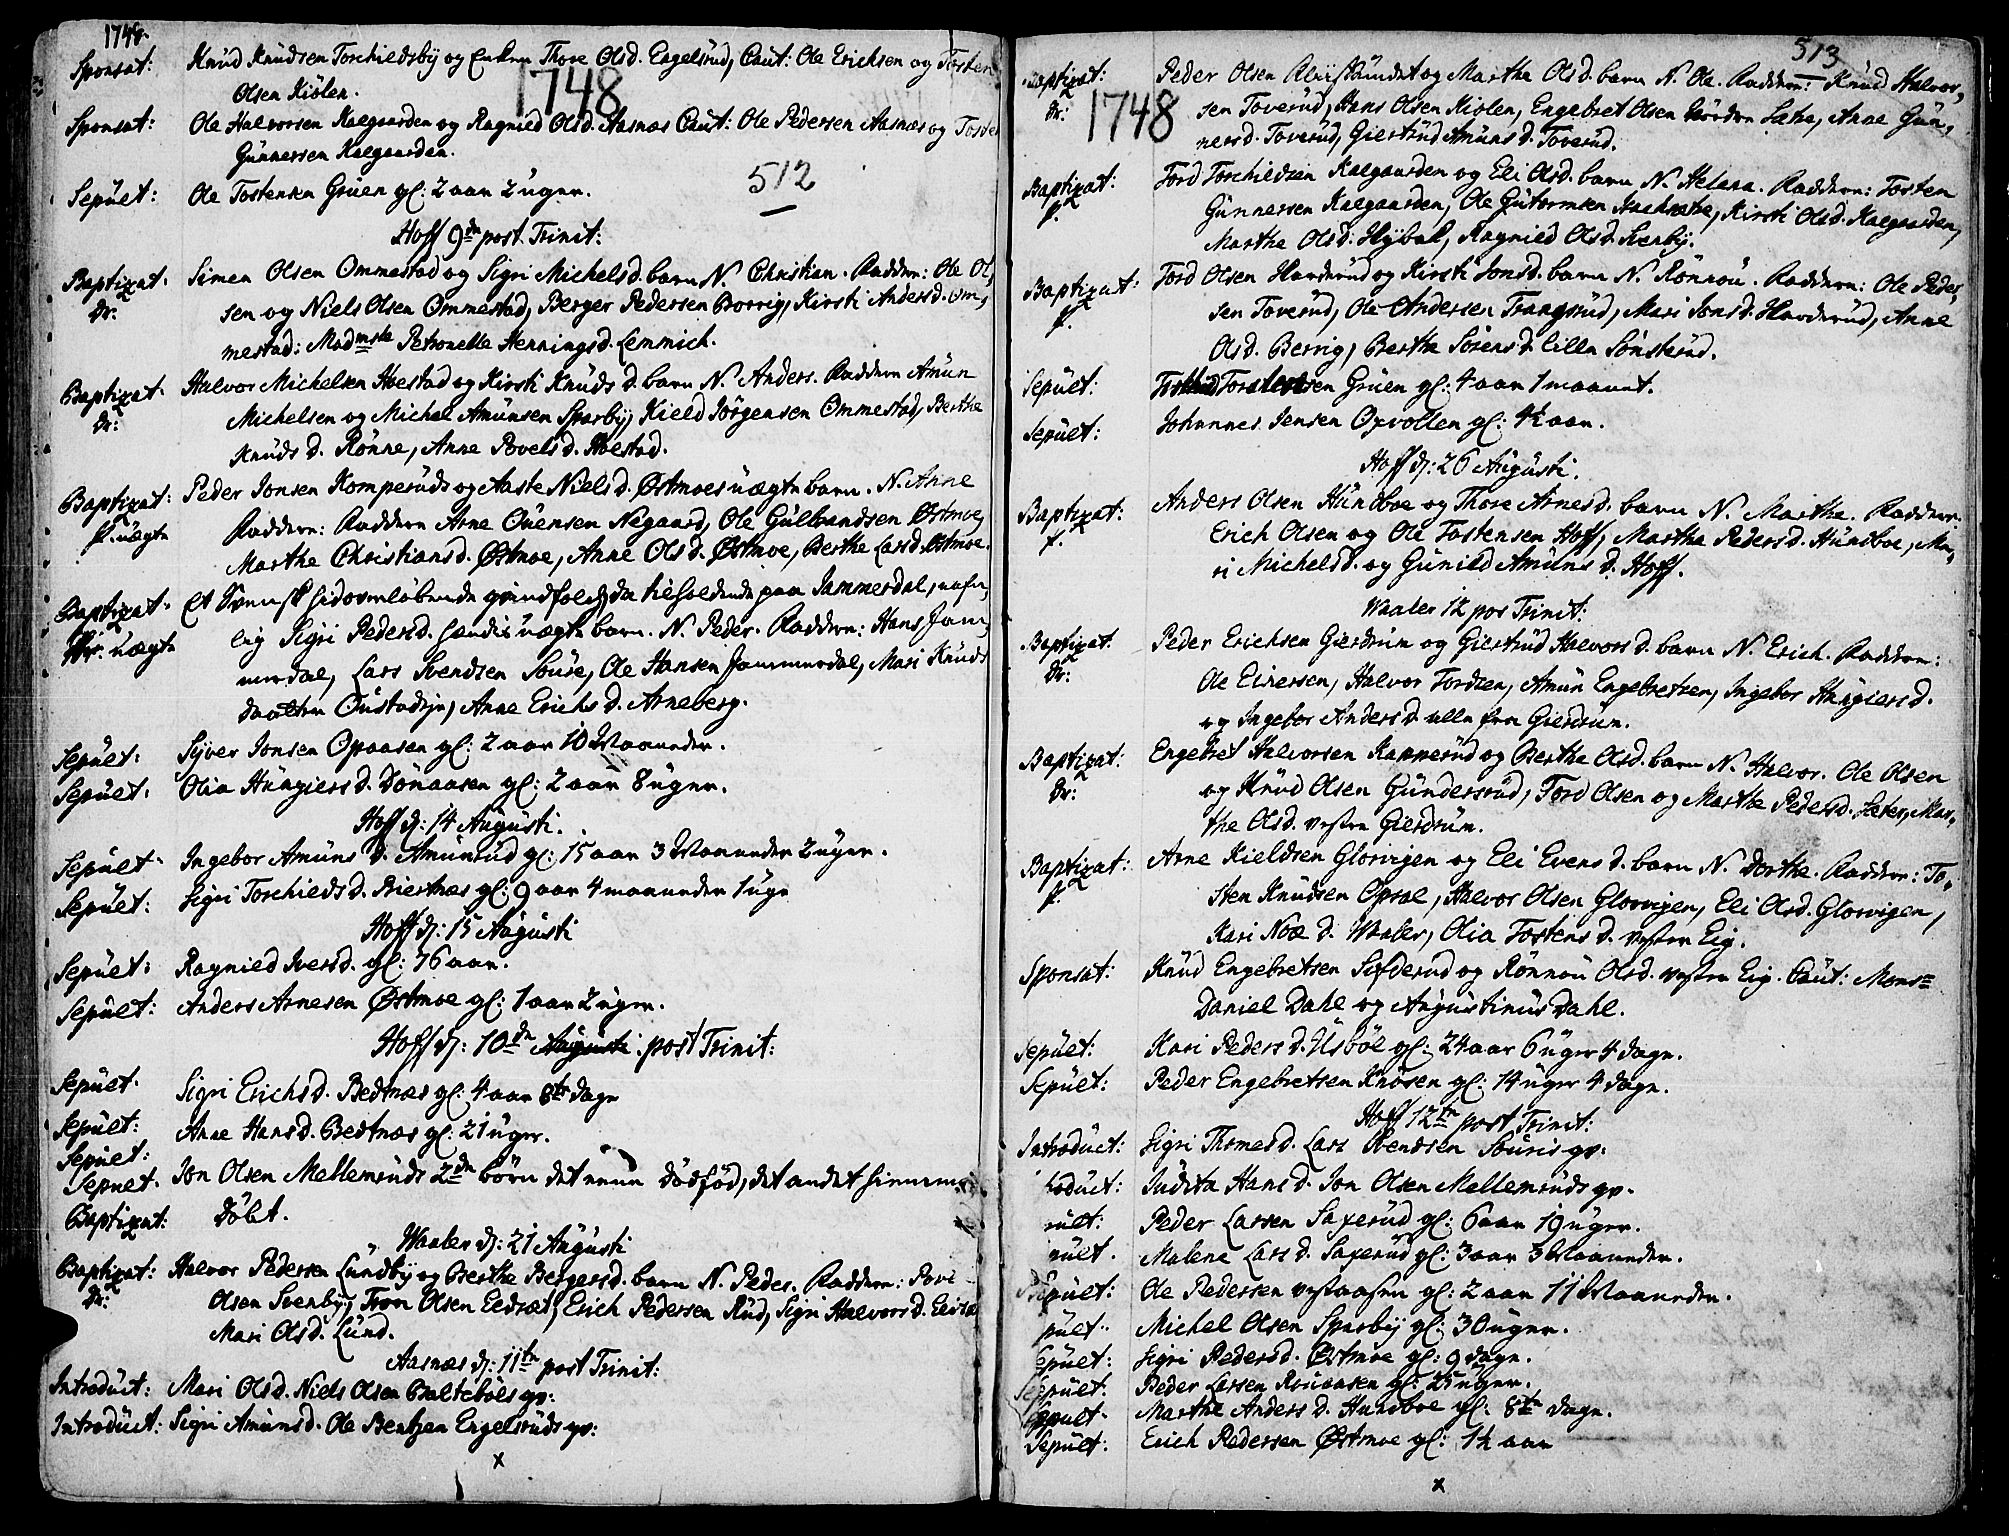 1748.
Sponsat: Knud Knudsen Torchiedsby og Enken Thore Olsd. Engelsrud, Caut: Ole Erichsen og Tosten
1748
Olsen Kiölen.
Sponsat: Ole Halvorsen Kalgaarden og Ragnild Olsd. Aasnæs Caut: Ole Pedersen Aasnæs og Tosten
Gunnersen Kalgaarden.
512
Sepult: Ole Tostensen Gruen gl: 2 aar 2 uger.
Hoff 9de post Trinit:
Baptizat. Simen Olsen Ommestad og Sigri Michelsd. barn N. Christian. Faddere: Ole Ol,
Dr: sen og Niels Olsen Ommestad, Berger Pedersen Borrig, Kirsti Andersd. Om,
mestad: Madmslle Petronelle Henningsd. Lemmich.
Baptizat. Halvor Michelsen Hoestad og Kirsti Knudsd. barn N. Anders. Faddere Amun
Dr: Michelsen og Michel Amunsen Sparby, Kield Jörgensen Ommestad, Berthe
Knuds d. Rönne, Anne Povels d. Hoestad.
Baptizat: Peder Jonsen Komperuds og Aaste Niels d. Østmoes uægte barn. N. Anne
P. uægte Faddere: Faddere Arne Ouensen Negaard, Ole Gulbrandsen Østmoe,
Marthe Christiansd. Østmoe, Anne Olsd. Østmoe, Berthe Larsd. Østmoe.
Baptizat. Et Svensk hidoverløbende qvindfolch, da tilholdende paa Jammerdal, nafn,
Dr: uægte lig Sigri Pedersd. hendis uægte barn. N. Peder. Faddere: Hans Jam,
merdal, Lars Svendsen Soure, Ole Hansen Jammerdal, Mari Knuds
daatter Oustadsje, Anne Erichs d. Arneberg.
Sepult: Syver Jonsen Opaasen gl: 2 aar 10 Maaneder.
Sepult: Olia Huagiersd. Dönaasen gl: 2 aar 8 uger.
Hoff d: 14 Augusti.
Sepult Ingebor Amuns d. Amunrud gl: 15 aar 3 Maaneder 2 uger.
Sepult: Sigri Torchieds d. Kiernæs gl: 9 aar 4 maaneder 1 uge
Hoff d: 15 Augusti
Sepult: Ragnild Iversd. gl: 76 aar.
Sepult: Anders Arnesen Østmoe gl: 1 aar 2 uger.
Hoff d: 10de Augusti post Trinit:
Sepult. Sigri Erichsd. Bednæs gl: 4 aar 8te dage
Sepult: Anne Hansd. Bedtnæs gl: 21 uger.
Sepult:
Sepult. Jon Olsen Mellemruds 2de börn det eene dödfød, det andet hiemme
Baptizat: döbt.
Waaler d: 21 Augusti
Baptizat: Halvor Pedersen Lundby og Berthe Bergersd. barn N. Peder. Faddere: Povi
Dr: Olsen Svenby, Tron Olsen Eedsæt, Erich Pedersen Rud, Sigri Halvorsd. Eeidse
Mari Olsd. Lund.
Aasnæs d: 11te post Trinit:
Introduct: Mari Olsd. Niels Olsen Baltebóls qv:
Introduct: Sigri Amunsd. Ole Bentzen Engelsruds qv:
x
513
Baptizat: Peder Olsen Alversundet og Marthe Olsd. barn N. Ole. Faddere: Knud Halvor,
1748
Dr: sen Toverud, Hans Olsen Kiolen, Engebret Olsen Nordre Sæte, Anne Gun,
nersd. Toverud, Giertrud Amuns d. Toverud.
Baptizat: Tord Torchildsen Kalgaarden og Eli Olsd. barn N. Helena. Faddere: Tosten
P. Gunnersen Kalgaarden, Ole Gutormsen Kirsti Olsd. Kalgaarden,
Marthe Olsd. Hybak, Ragnild Olsd. Svenby.
Baptizat: Tord Olsen Harderud og Kirsti Jonsd. barn N. Rönnou. Faddere: Ole Peder,
P. sen Toverud, Ole Andersen Trangsrud, Mari Jonsd. Harderud, Anne
Olsd. Berrig, Berthe Sörens d. lille Sönsterud.
Sepult: Gruen gl: 4 aar 1 maanet.
Sepult: Johannes Jensen Opvollen gl: 4½ aar.
Hoff d: 26 Augusti.
Baptizat: Anders Olsen Hundboe og Thore Arnesd. barn N. Marthe. Faddere:
P. Erich Olsen og Ole Tostensen Hoff, Marthe Pedersd. Hundboe, Ma,
ri Michelsd. og Gunild Amuns d. Hoff.
Waaler 12 pos Trinit:
Baptizat. Peder Erichsen Gierdrum og Giertrud Halvors d. barn N. Erich. Faddere:
Dr: Ole Einersen, Halvor Tordsen, Amun Engebretsen, Ingebor Huagiersd.
og Ingebor Anders d. alle fra Gierdrum.
Baptizat: Engebret Halvorsen Kammerud og Berthe Olsd. barn N. Halvor. Ole Olsen
Dr: og Knud Olsen Gundersrud, Tord Olsen og Marthe Pedersd. Sæter, Mar,
the Olsd. vestre Gierdrum.
Baptizat: Arne Kieldsen Glorvigen og Eli Evens d. barn N. Dorthe. Faddere: To,
P. sten Knudsen Opsal, Halvor Olsen Glorvigen, Eli Olsd. Glorvigen,
Kari Noæ d. Waaler, Olia Tostens d. vestre Eig.
Sponsat: Knud Engebretsen Sufderud og Rönnou Olsd. vestre Eig. Caut: Monsr
Daniel Dahl og Augustinus Dahl.
Sepult: Kari Peders d. Usböl gl: 24 aar 6 uger 4 dage.
Sepult: Peder Engebretsen Knösen gl: 14 uger 4 dage.
Hoff 12te post Trinit:
Introduct: Sigri Thomesd. Lars Svendsen Souris qv.
roduct: Judita Hans d. Jon Olsen Mellemruds qv.
pult: Peder Larsen Saxerud gl: 6 aar 19 uger.
pult. Malene Lars d. Saxerud gl: 3 aar 3 Maaneder.
Sepult: Ole Pedersen vestaasen gl: 2 aar 11 Maaneder.
pult: Michel Olsen Sparby gl: 30 uger.
Sepult: Sigri Pedersd. Østmoe gl: 9 dage.
Sepult: Peder Larsen gl: 25 uger.
Sepult. Marthe Anders d. Hundboe gl: 8te dage.
Sepult: Erich Pedersen Østmoe gl: 1½ aar
x